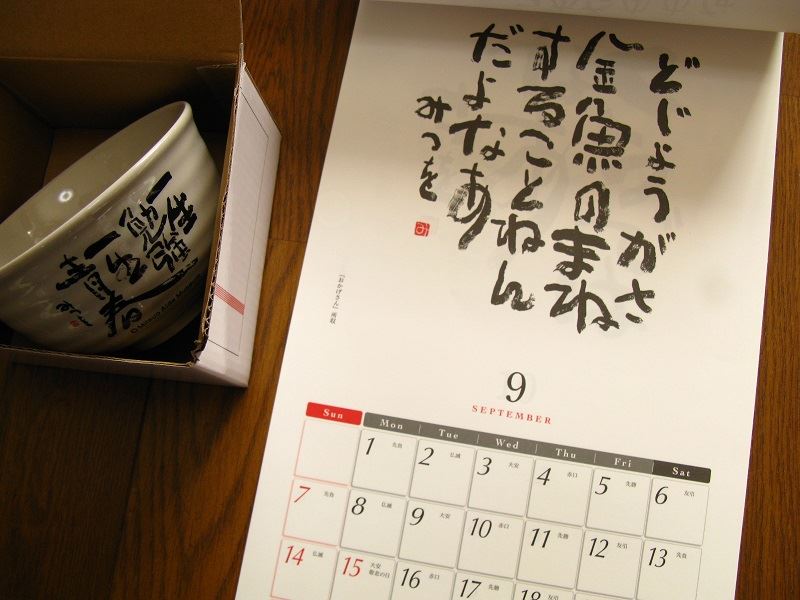 どじょうがさ
金魚のまね
することねん
だよなあ
みつを
み
「おかげさん」所収
9
SEPTEMBER
Sun Mon Tue Wed Thu Fri Sat
1 先負 2 仏滅 3 大安 4 赤口 5 先勝 6 友引
7 先負 8 仏滅 9 大安 10 赤口 11 先勝 12 友引 13 先負
14 仏滅 15 大安 敬老の日 16 赤口 17 先勝 18 友引
一生勉強
一生青春
みつを
© Mitsuo Aida Museum